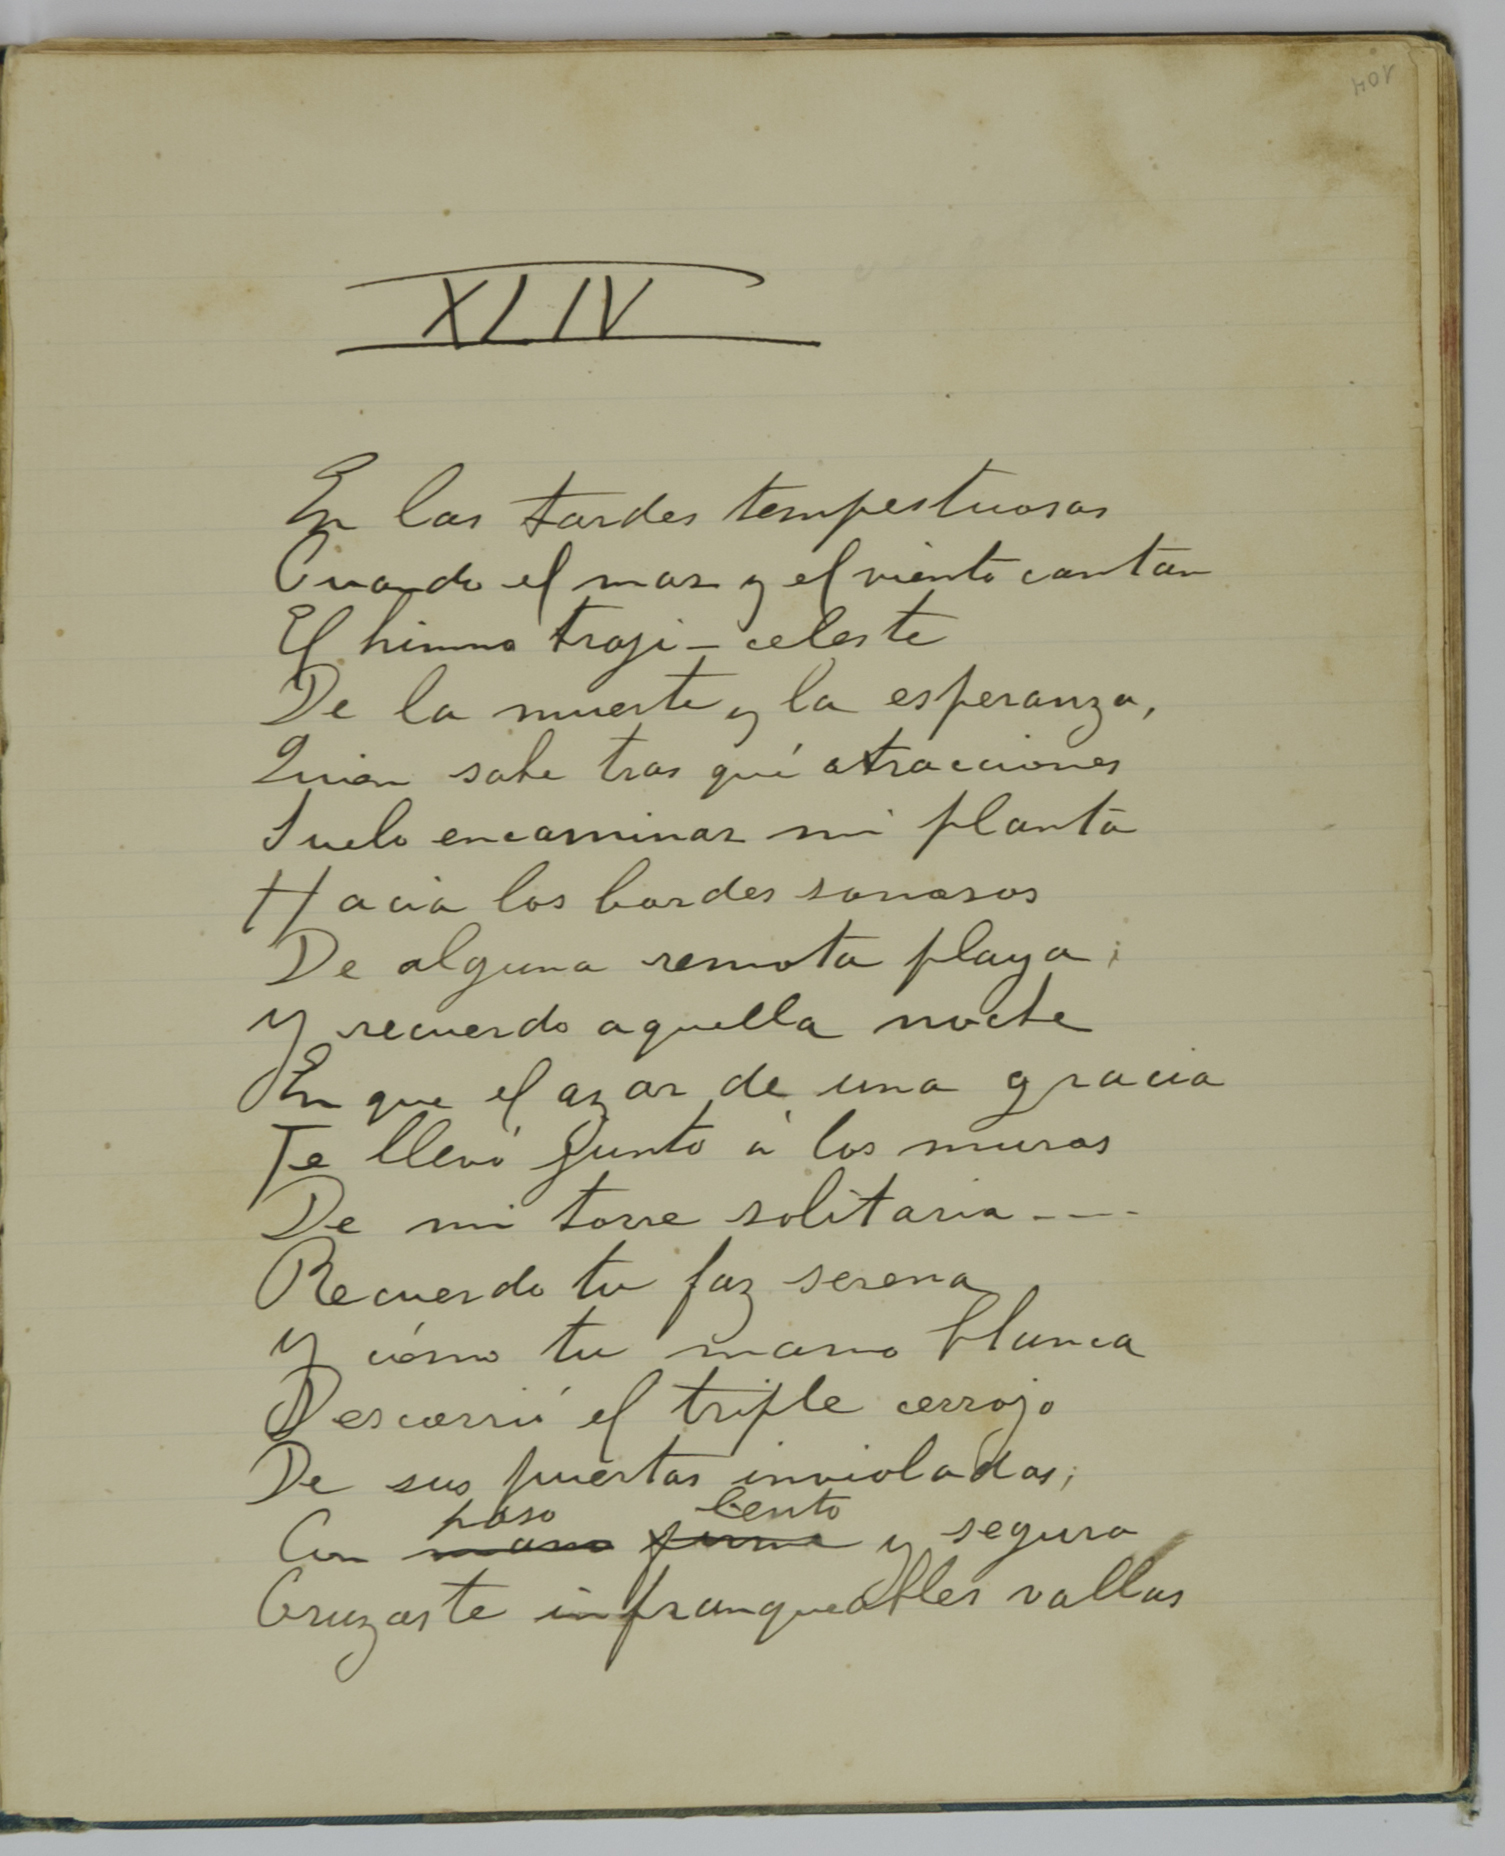 104
XLIV
En las tardes tempestuosas
Cuando el mar y el viento cantan
El himno traji-celeste
De la muerte y la esperanza,
Quien sabe tras qué atracciones
Suelo encaminar mi planta
Hacia los bordes sonoros
De alguna remota playa;
Y recuerdo aquella noche
En que el azar de una gracia
Te llevó junto á los muros
De mi torre solitaria----
Recuerdo tu faz serena
Y cómo tu mano blanca
Descorrió el triple cerrojo
De sus puertas invioladas;
paso lento
Con mano firme y segura
Cruzaste infranqueables vallas